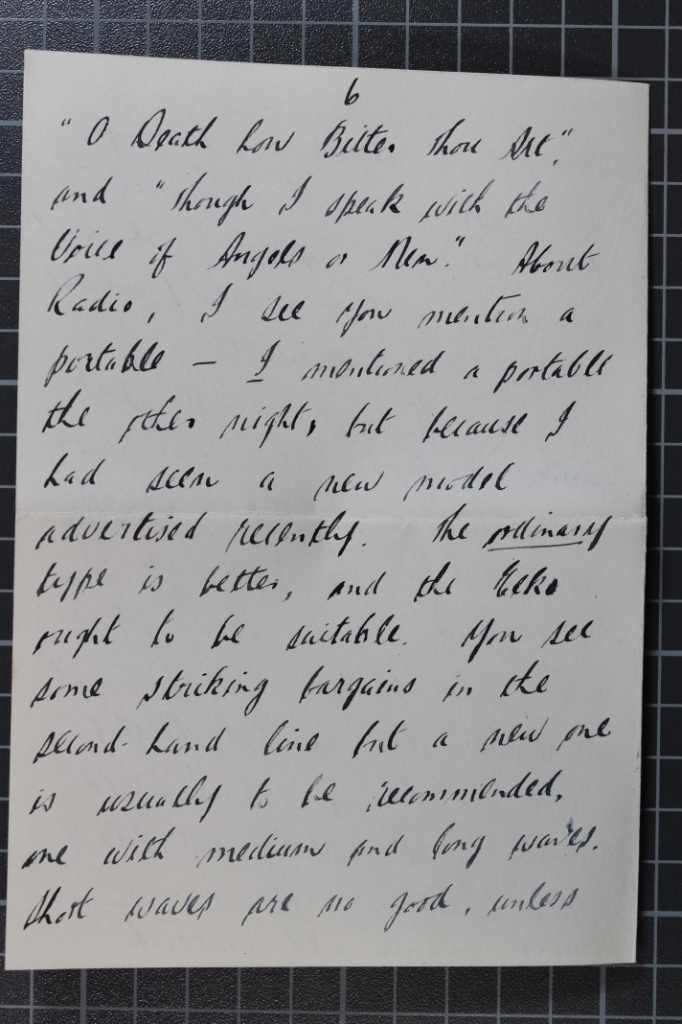 6
"O Death how Bitter thou Art",
and "Though I speak with the
Voice of Angels or Men." About
Radio, I see you mention a
portable — I mentioned a portable
the other night, but because I
had seen a new model
advertised recently. The ordinary
type is better, and the Ekko
ought to be suitable. You see
some striking bargains in the
second-hand line but a new one
is usually to be recommended,
one with medium and long waves.
Short waves are no good, unless